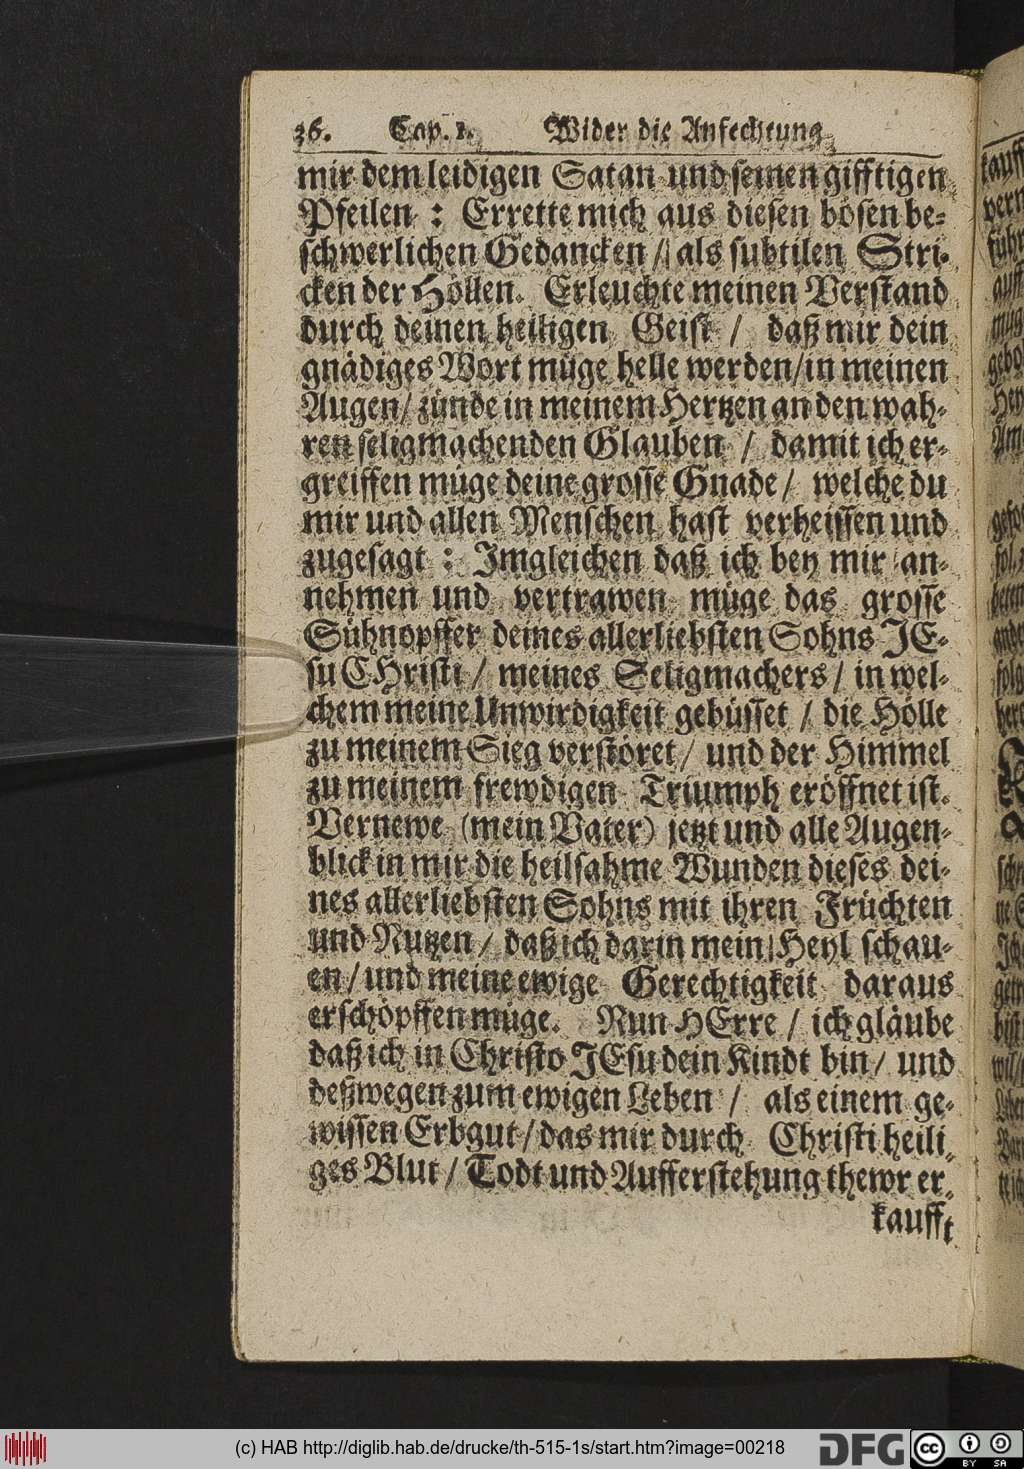 36. Cap. 1. Wider die Anfechtung
mir dem leidigen Satan und seinen gifftigen
Pfeilen : Errette mich aus diesen bösen be-
schwerlichen Gedancken / als subtilen Stri-
cken der Höllen. Erleuchte meinen Verstand
durch deinen heiligen Geist / daß mir dein
gnädiges Wort müge helle werden/ in meinen
Augen/ zünde in meinem Hertzen an den wah-
ren seligmachenden Glauben / damit ich er-
greiffen müge deine grosse Gnade / welche du
mir und allen Menschen hast verheissen und
zugesagt : Imgleichen daß ich bey mir an-
nehmen und vertrawen müge das grosse
Sühnopffer deines allerliebsten Sohns JE-
su CHristi / meines Seligmachers / in wel-
chem meine Unwirdigkeit gebüsset / die Hölle
zu meinem Sieg verstöret / und der Himmel
zu meinem frewdigen Triumph eröffnet ist.
Vernewe (mein Vater) jetzt und alle Augen-
blick in mir die heilsahme Wunden dieses dei-
nes allerliebsten Sohns mit ihren Früchten
und Nutzen / daß ich darin mein Heyl schau-
en / und meine ewige Gerechtigkeit daraus
erschöpffen müge. Nun HErre / ich gläube
daß ich in Christo JEsu dein Kindt bin / und
deßwegen zum ewigen Leben / als einem ge-
wissen Erbgut / das mir durch Christi heili-
ges Blut / Todt und Aufferstehung thewr er-
kaufft
(c) HAB http://diglib.hab.de/drucke/th-515-1s/start.htm?image=00218
DFG
cc BY SA